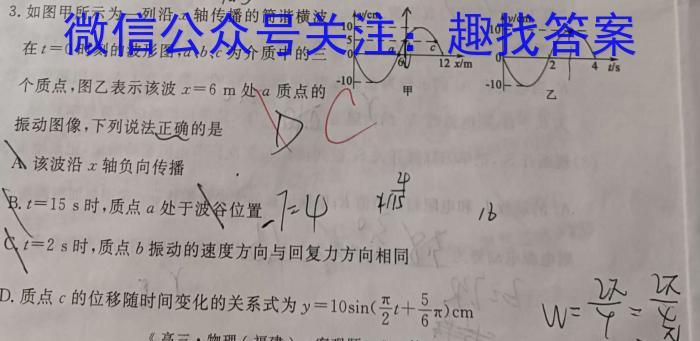 3. 如图甲所示为一列沿 x 轴传播的简谐横波
微信公众号关注：趣找答案
在 t=0时刻的波形图, a、b、c 为介质中的三
个质点,图乙表示该波 x=6 m 处 a 质点的
振动图像,下列说法正确的是
y/cm
10
5
-10
6
c
12 x/m
甲
y/cm
10
-10
2
4 t/s
乙
D C
A. 该波沿 x 轴负向传播
B. t=15 s 时,质点 a 处于波谷位置
T=4
16
C. t=2 s 时,质点 b 振动的速度方向与回复力方向相同
D. 质点 c 的位移随时间变化的关系式为 y=10sin(π/2 t+5/6 π)cm
W= 2π/4 = 2π/4
《高三·物理(福建)